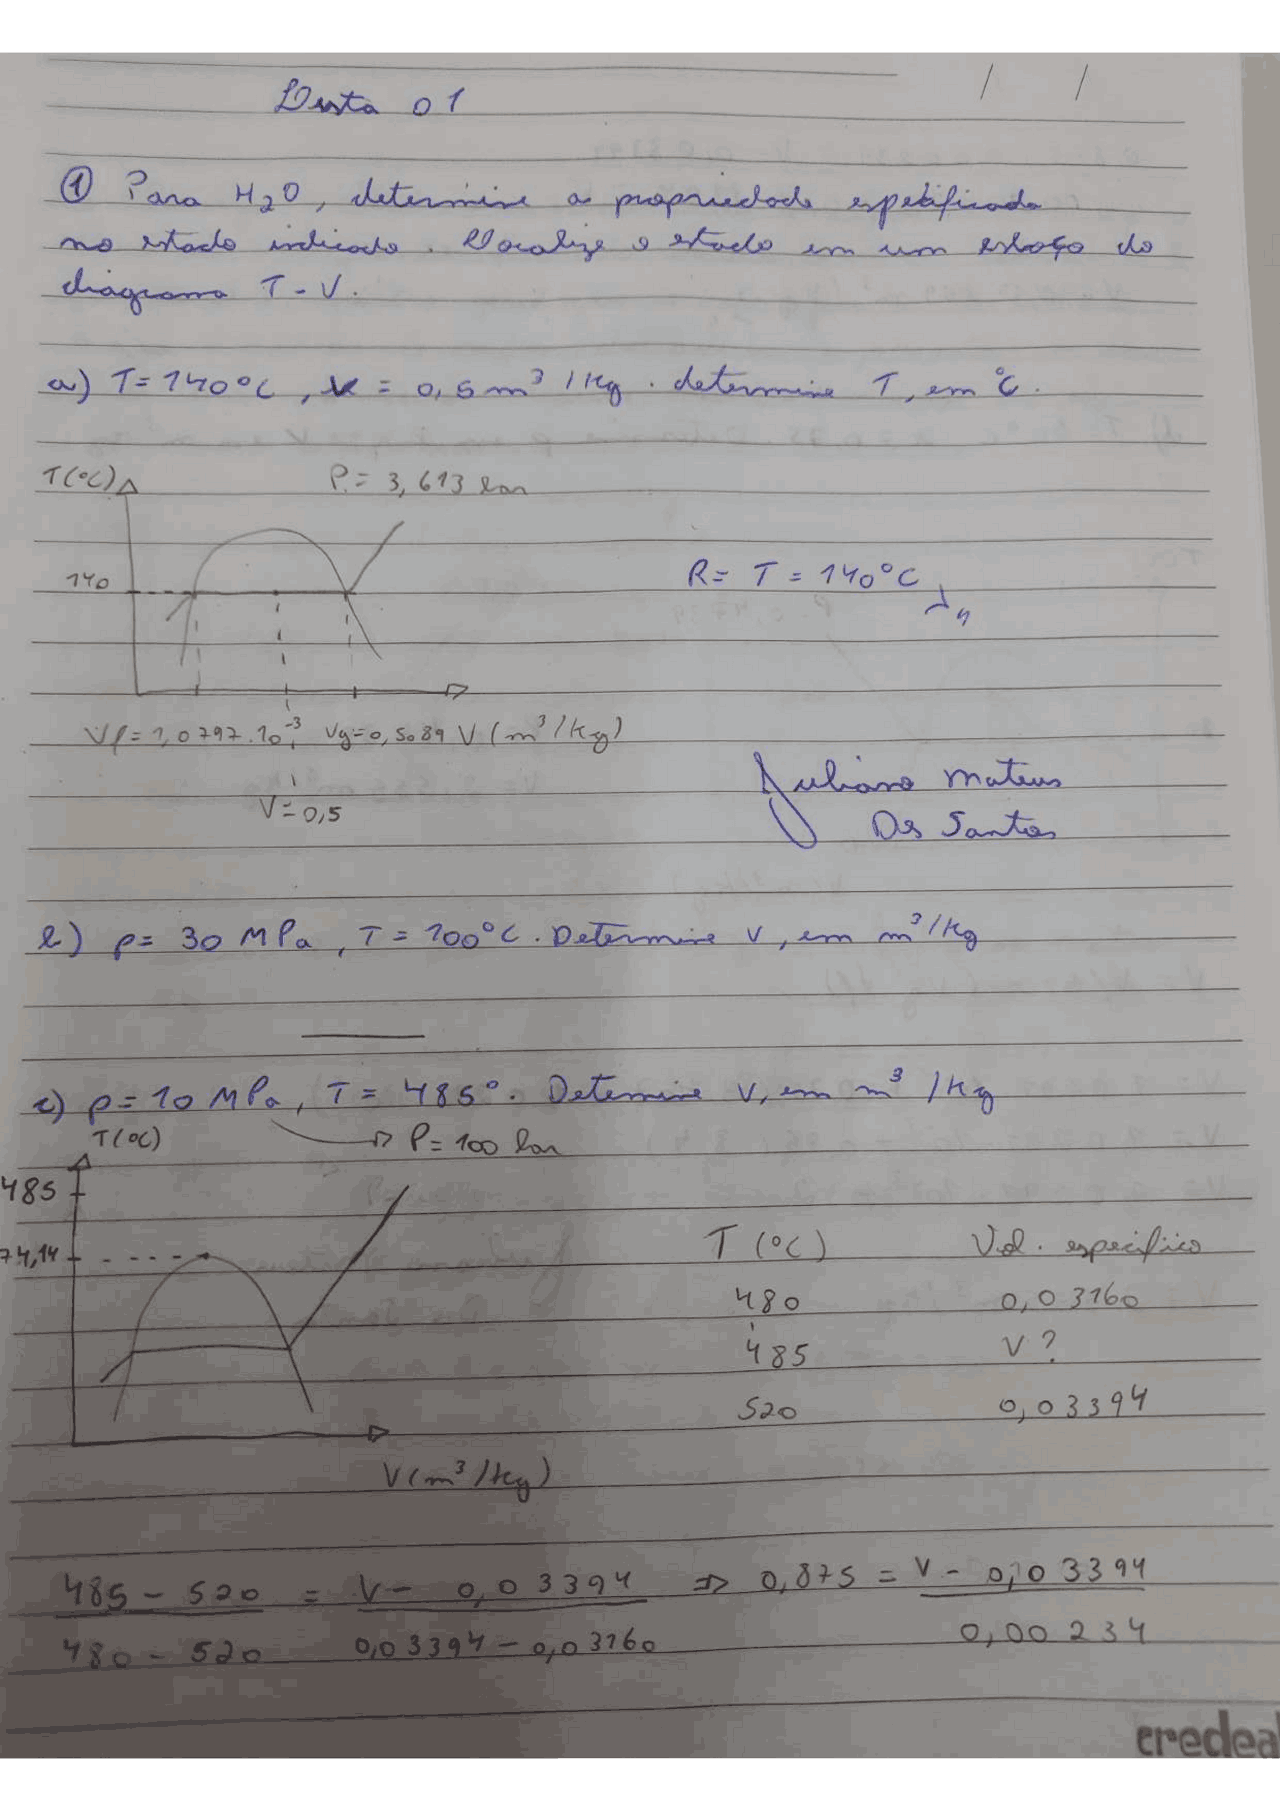 Lista 01
/ /
① Para H₂O, determine a propriedade espetificada
no estado indicado. Localize o estado em um esboço do
diagrama T-V.
a) T=140°C, v = 0,5 m³/Kg. determine T, em °C.
T(°C) P.= 3,613 bar
140
R= T = 140°C
Vf=1,0797.10⁻³ Vg=0,5089 V (m³/kg)
V=0,5
Juliano Mateus
Dos Santos
b) p= 30 MPa, T= 100°C. Determine v, em m³/kg
c) p= 10 MPa, T= 485°. Detemine v, em m³/kg
T(°C) P= 100 bar
485
74,14
T (°C) Vol. específico
480 0,03160
485 V?
520 0,03394
V(m³/kg)
485 - 520 = V - 0,03394 ⇒ 0,875 = V - 0,03394
480 - 520 0,03394 - 0,03160 0,00234
credeal